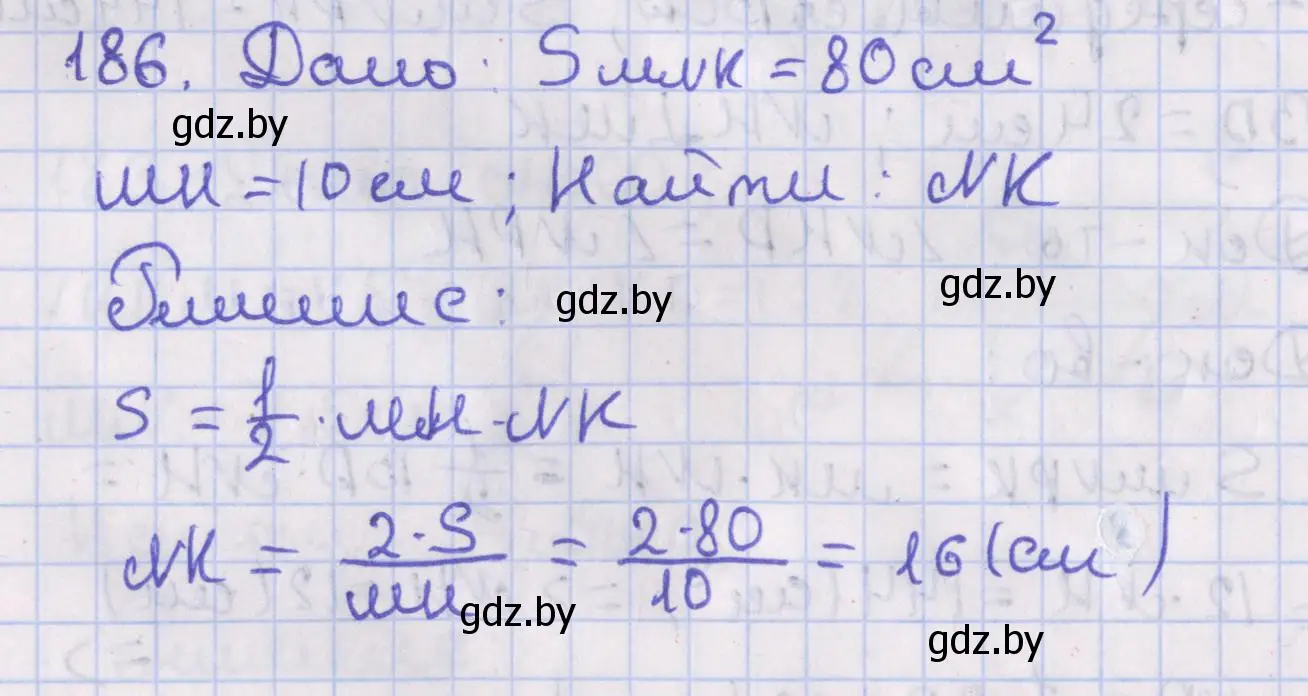 186. Дано: Sмлк = 80 см²
gdz.by
мн = 10 см; Найти: NK
Решение:
gdz.by
gdz.by
S = 1/2 · мн · NK
NK = 2·S/мн = 2·80/10 = 16 (см)
gdz.by
gdz.by